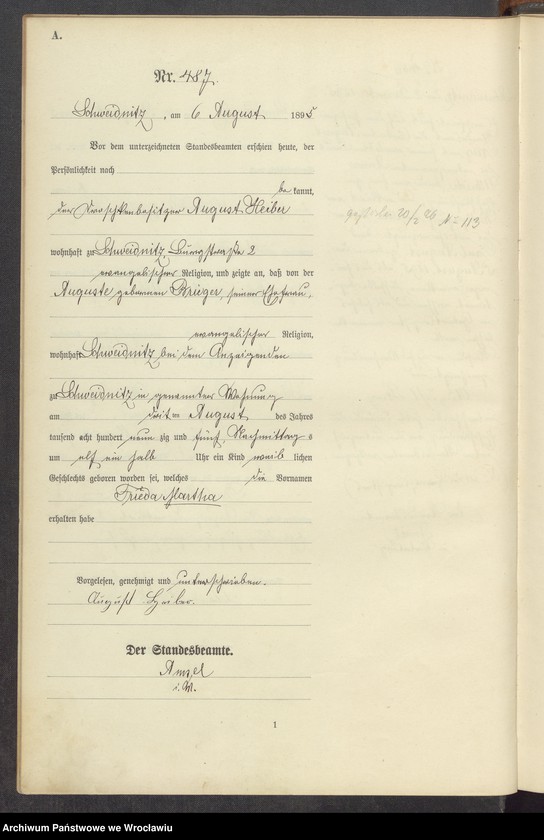 A.
Nr. 487.
Schweidnitz, am 6 August 1895
Vor dem unterzeichneten Standesbeamten erschien heute, der
Persönlichkeit nach
be kannt,
der Droschkenbesitzer August Heiber
wohnhaft zu Schweidnitz, Burgstraße 2
evangelischer Religion, und zeigte an, daß von der
Auguste geborenen Krieger, seiner Ehefrau,
evangelischer Religion,
wohnhaft Schweidnitz bei dem Anzeigenden
zu Schweidnitz in genannter Wohnung
am dritten August des Jahres
tausend acht hundert neun zig und fünf, Nachmittag s
um elf ein halb Uhr ein Kind weib lichen
Geschlechts geboren worden sei, welches die Vornamen
Frieda Martha
erhalten habe
Vorgelesen, genehmigt und unterschrieben.
August Heiber.
Der Standesbeamte.
Amsel
i. V.
1
20/2 26 № 113
Archiwum Państwowe we Wrocławiu